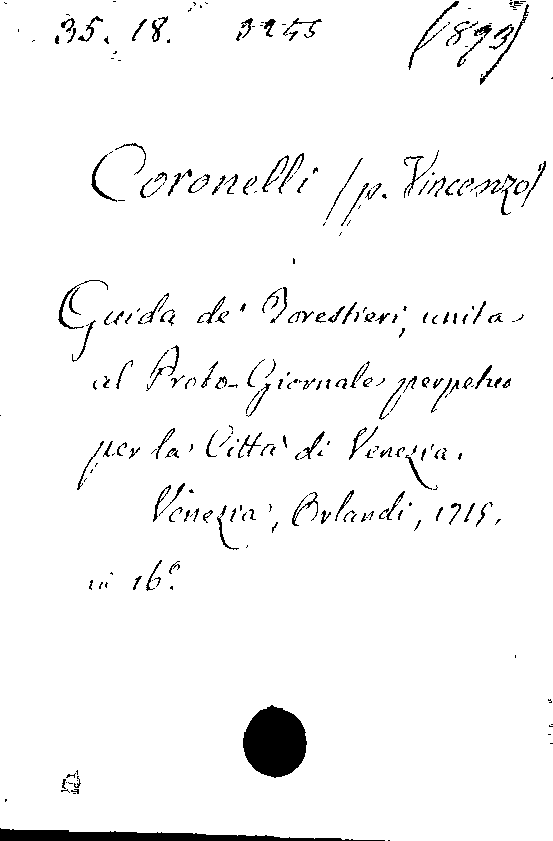 35. 18. 3245 (1893)
Coronelli (p. Vincenzo)
Guida de' Forestieri, unita
al Proto-Giornale perpetuo
per la Città di Venezia.
Venezia, Orlandi, 1715.
in 16º.